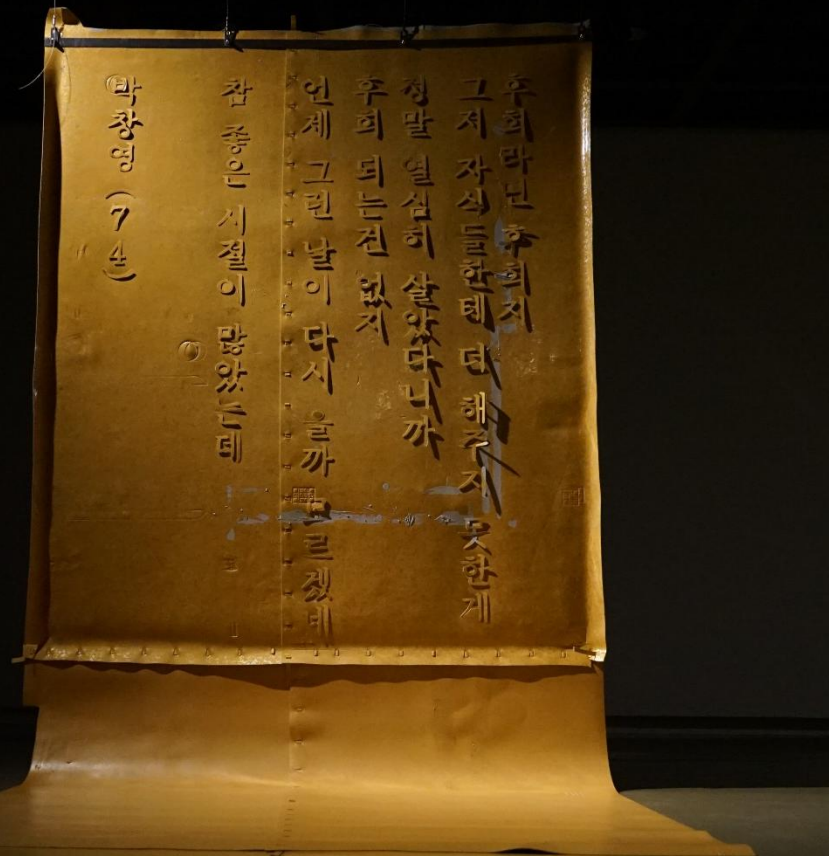 후회라닌 후회지
그저 자식들한테 더 해주지 못한게
정말 열심히 살았다니까
후회 되는건 없지
언제 그런 날이 다시 올까 모르겠네
참 좋은 시절이 많았는데
박창영 (74)